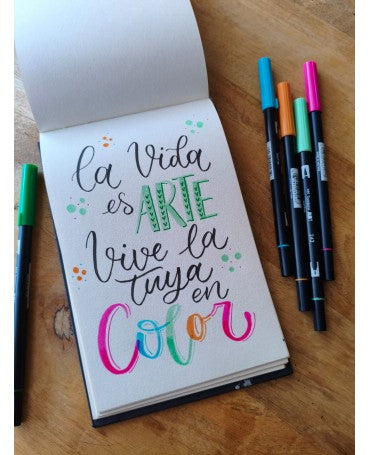 La Vida
es ARTE
Vive la
tuya en
Color